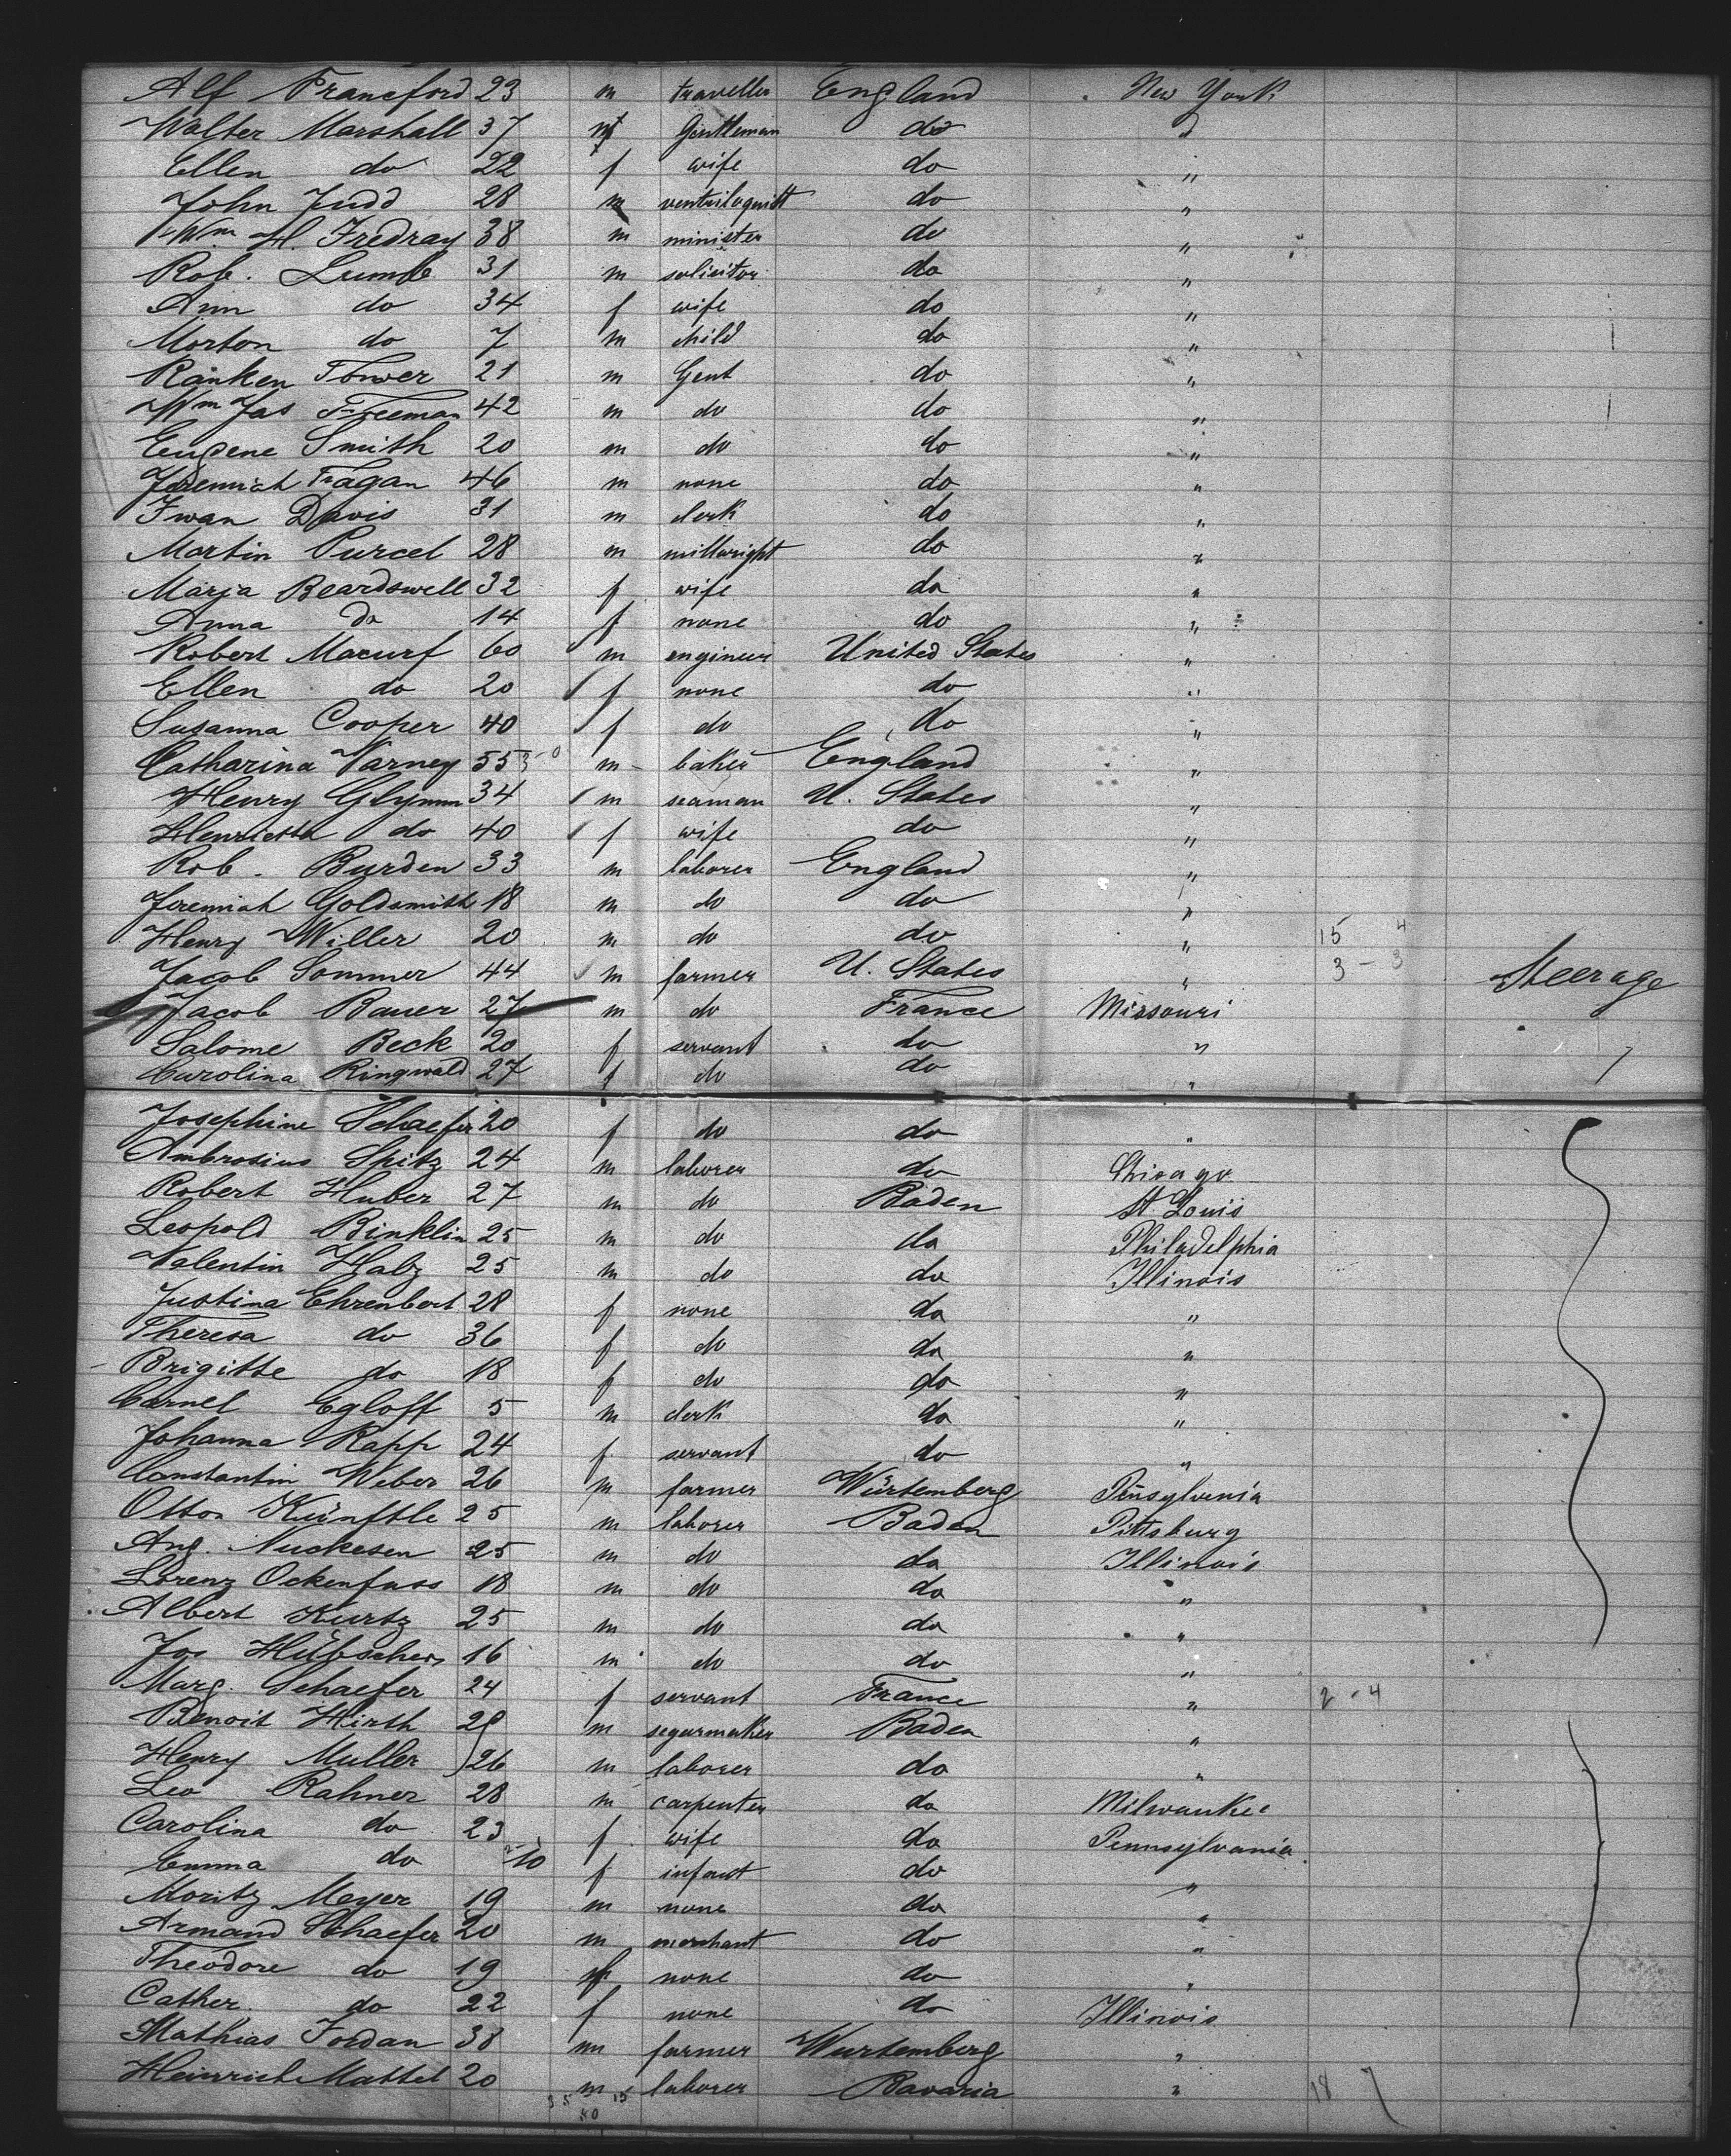 Alf Franceford 23 m traveller England New York
Walter Marshall 37 m Gentleman do "
Ellen do 22 f wife do "
John Judd 28 m ventriloquist do "
Wm H. Fredray 38 m minister do "
Rob. Lumb 31 m solicitor do "
Ann do 34 f wife do "
Morton do 7 m child do "
Ranken Tower 21 m Gent do "
Wm Jas Freeman 42 m do do "
Eugene Smith 20 m do do "
Jeremiah Fagan 46 m none do "
Iwan Davis 31 m clerk do "
Martin Purcel 28 m millwright do "
Marja Beardswell 32 f wife do "
Anna do 14 f none do "
Robert Macurf 60 m engineer United States "
Ellen do 20 f none do "
Susanna Cooper 40 f do do "
Catharina Varney 55 m baker England "
Henry Glynnn 34 m seaman U. States "
Henrietta do 40 f wife do "
Rob. Burden 33 m laborer England "
Jeremiah Goldsmith 18 m do do "
Henry Willer 20 m do do " 15 4
Jacob Sommer 44 m farmer U. States " 3 - 3 Steerage
Jacob Bauer 27 m do France Missouri
Salome Beck 20 f servant do "
Carolina Ringwald 27 f do do "
Josephine Schaefer 20 f do do "
Ambrosius Spitz 24 m laborer do Chicago
Robert Huber 27 m do Baden St. Louis
Leopold Binklin 25 m do do Philadelphia
Valentin Halz 25 m do do Illinois
Justina Ehrenbert 28 f none do "
Theresa do 36 f do do "
Brigitte do 18 f do do "
Carnel Egloff 5 m clerk do "
Johanna Rapp 24 f servant do "
Constantin Weber 26 m farmer Würtemberg Pensylvania
Otto Künftle 25 m laborer Baden Pittsburg
Aug. Nuckesen 25 m do do Illinois
Lorenz Ockenfuss 18 m do do "
Albert Kurtz 25 m do do "
Jos Hübscher 16 m do do "
Marg. Schaefer 24 f servant France " 2 - 4
Benoit Hirth 28 m segarmaker Baden "
Henry Muller 26 m laborer do "
Leo Rahner 28 m carpenter do Milwaukee
Carolina do 23 f wife do Pennsylvania
Emma do 10 f infant do "
Moritz Meyer 19 m none do "
Armand Schaefer 20 m merchant do "
Theodore do 19 none do "
Cather. do 22 f none do Illinois
Mathias Jordan 38 m farmer Wurtemberg "
Heinrich Mattel 20 m laborer Bavaria " 18 7